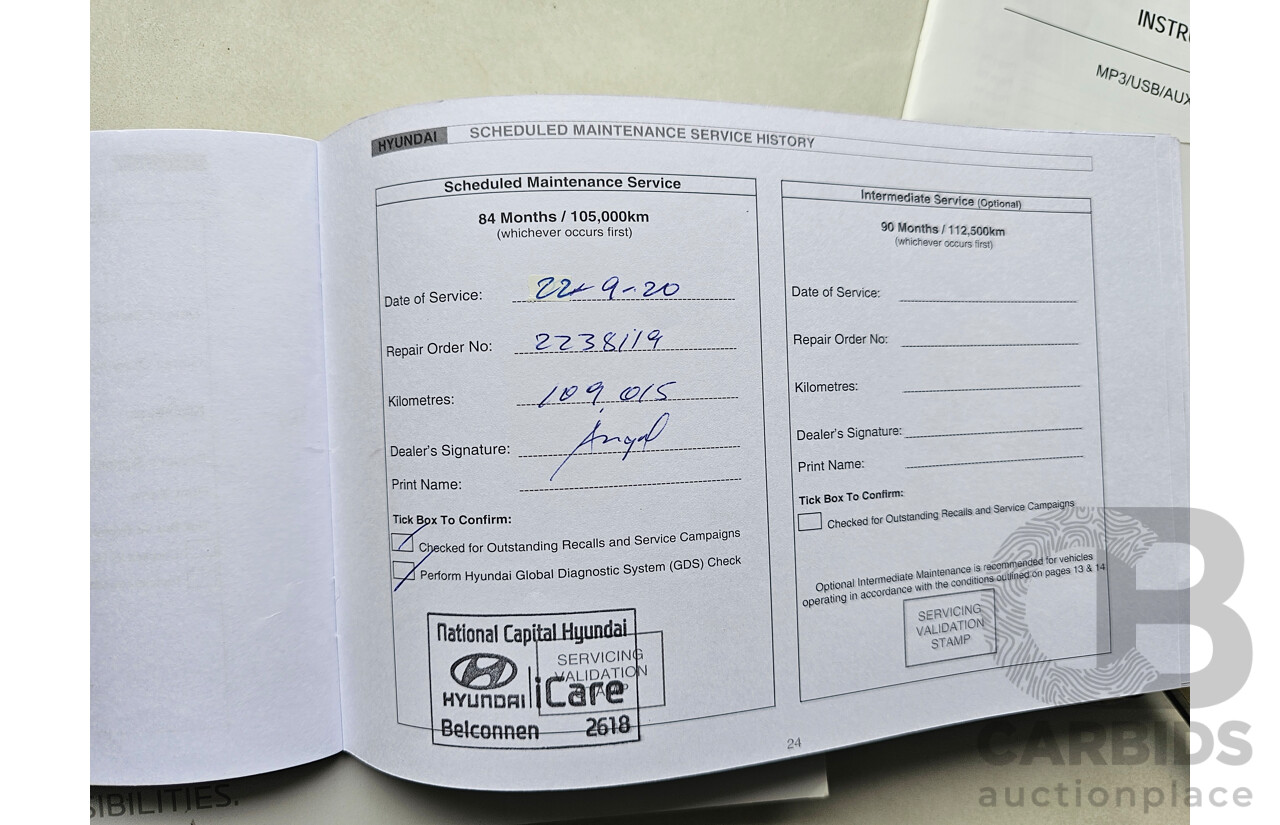 INSTR
MP3/USB/AUX
HYUNDAI SCHEDULED MAINTENANCE SERVICE HISTORY
Scheduled Maintenance Service
84 Months / 105,000km
(whichever occurs first)
Date of Service: 22-9-20
Repair Order No: 2238119
Kilometres: 109,015
Dealer's Signature: Angel
Print Name:
Tick Box To Confirm:
Checked for Outstanding Recalls and Service Campaigns
Perform Hyundai Global Diagnostic System (GDS) Check
National Capital Hyundai
SERVICING
VALIDATION
STAMP
HYUNDAI iCare
Belconnen 2618
Intermediate Service (Optional)
90 Months / 112,500km
(whichever occurs first)
Date of Service:
Repair Order No:
Kilometres:
Dealer's Signature:
Print Name:
Tick Box To Confirm:
Checked for Outstanding Recalls and Service Campaigns
Optional Intermediate Maintenance is recommended for vehicles
operating in accordance with the conditions outlined on pages 13 & 14
SERVICING
VALIDATION
STAMP
24
SIBILITIES.
CB
CARBIDS
auctionplace